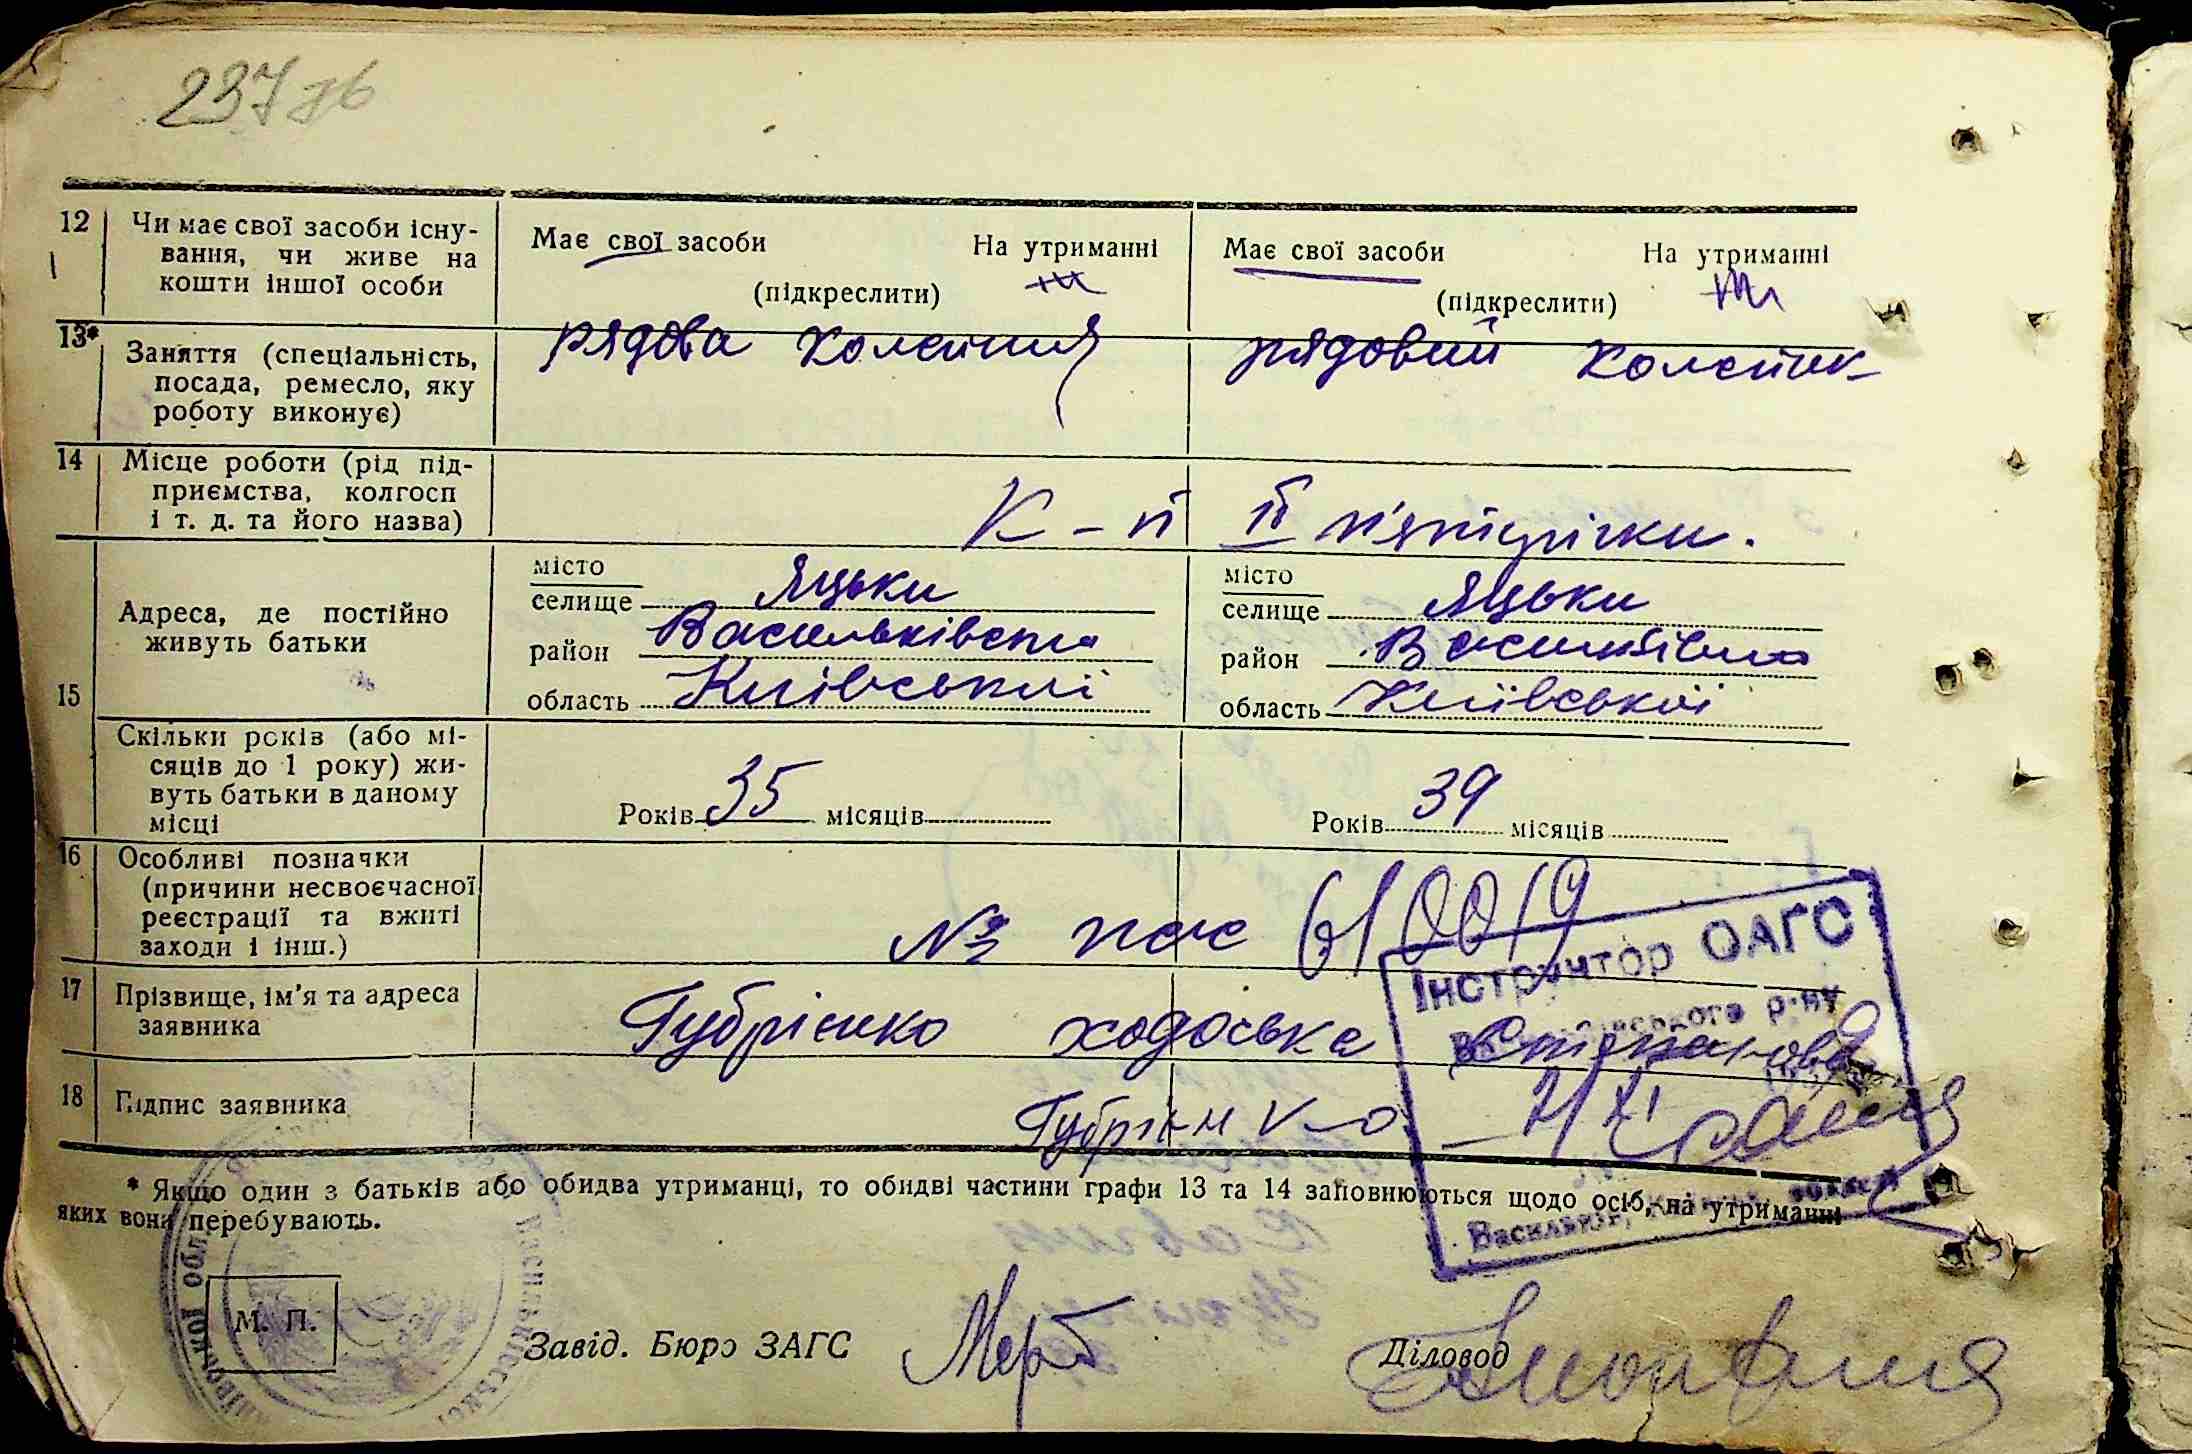 237 зв
12 Чи має свої засоби існу-
вання, чи живе на
кошти іншої особи
Має свої засоби На утриманні
(підкреслити)
Має свої засоби На утриманні
(підкреслити)
13* Заняття (спеціальність,
посада, ремесло, яку
роботу виконує)
рядова
рядовий
14 Місце роботи (рід під-
приємства, колгосп
і т. д. та його назва)
К-п ІІ п'ятирічки.
15 Адреса, де постійно
живуть батьки
місто
селище Яцьки
район Васильківська
область Київської
місто
селище Яцьки
район Васильківська
область Київської
Скільки років (або мі-
сяців до 1 року) жи-
вуть батьки в даному
місці
Років 35 місяців
Років 39 місяців
16 Особливі позначки
(причини несвоєчасної
реєстрації та вжиті
заходи і інш.)
№ пас 610019
17 Прізвище, ім'я та адреса
заявника
Губрієнко ходоська
18 Підпис заявника
Інструктор ОАГС
р-ну
* Якщо один з батьків або обидва утриманці, то обидві частини графи 13 та 14 заповнюються щодо осіб, на утриманні
яких вони перебувають.
М. П.
Завід. Бюро ЗАГС
Діловод